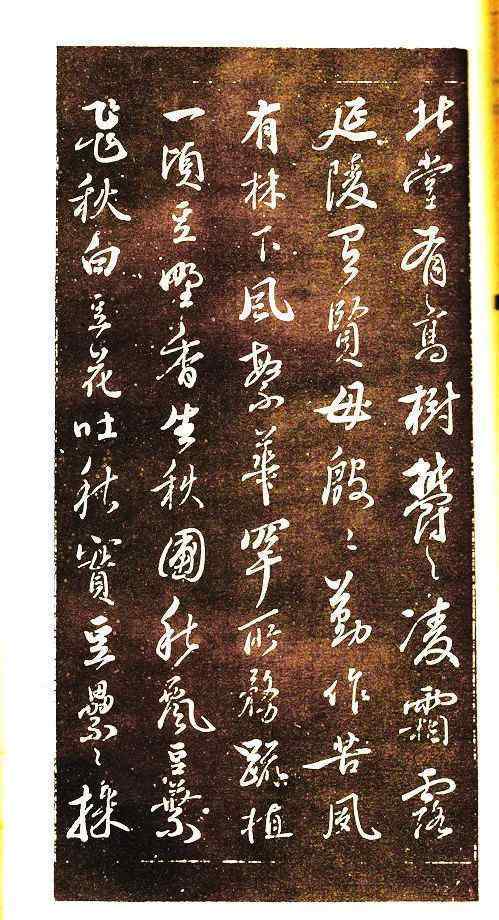 北堂有高樹鬱〻凌霜露
延陵有賢母殷〻勤作苦風
有林下風繁華罕所務疏植
一頃豆野香生秋圃秋風豆葉
飛秋白豆花吐秋實豆纍〻採